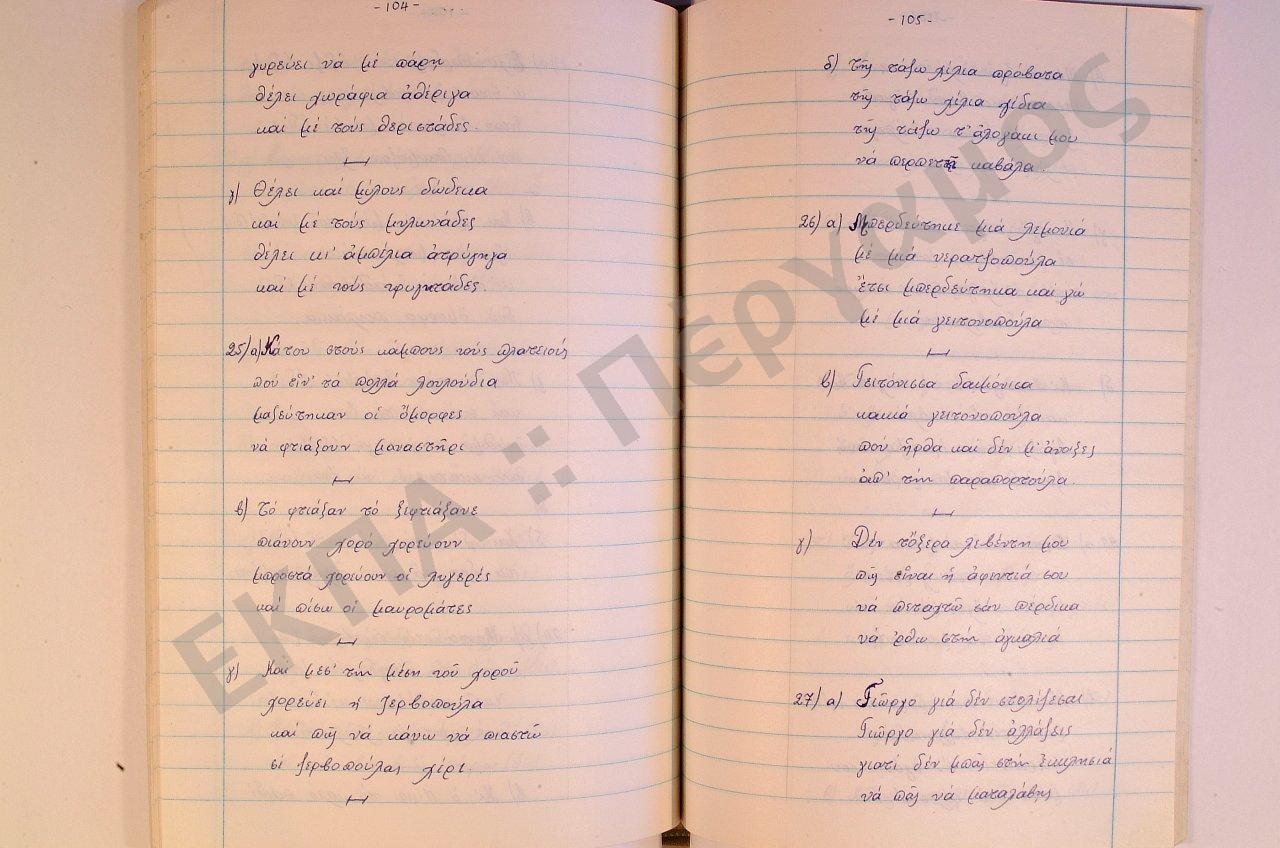 -104-
γυρεύει νά μέ πάρη
θέλει χωράφια ἀθέριγα
καί μέ τούς θεριστάδες
γ) Θέλει καί μύλους δώδεκα
καί μέ τούς μυλωνάδες
θέλει κι' ἀμπέλια ἀτρύγηγα
καί μέ τούς τρυγητάδες
25/α) Κάτου στούς κάμπους τούς πλατειούς
πού εἶν' τά πολλά λουλούδια
μαζεύτηκαν οἱ ὄμορφες
νά φτιάξουν μαναστῆρι
β) Τό φτιάξαν τό ξεφτιάξανε
πιάνουν χορό χορεύουν
μπροστά χορεύουν οἱ λυγερές
καί πίσω οἱ μαυρομάτες
γ) Καί μεσ' τήν μέση τοῦ χοροῦ
χορεύει ἡ ζερβοπούλα
καί πῶς νά κάνω νά πιαστῶ
σέ ζερβοπούλας χέρι.
-105-
δ) τῆς τάζω χίλια πρόβατα
τῆς τάζω χίλια γίδια
τῆς τάζω τ' ἀλογάκι μου
νά περπετῆ καβάλα.
26/ α) Μπερδεύτηκε μιά λεμονιά
μέ μιά νερατζοπούλα
ἔτσι μπερδεύτηκα καί γώ
μέ μιά γειτονοπούλα
β) Γειτόνισσα δαιμόνισα
κακιά γειτονοπούλα
πού ἦρθα καί δέν μ' ἄνοιξες
ἀπ' τήν παραπορτούλα.
γ) Δέν τὄξερα λεβέντη μου
πῶς εἶναι ἡ ἀφεντιά σου
νά πεταχτῶ σάν πέρδικα
νά ἐρθω στήν ἀγκαλιά
27/ α) Γιῶργο γιά δέν στολίζεσαι
Γιῶργο γιά δέν ἀλλάζεις
γιατί δέν μπᾶς στήν ἐκκλησιά
νά πᾶς νά μεταλάβης
ΕΚΠΑ :: Πέργαμος